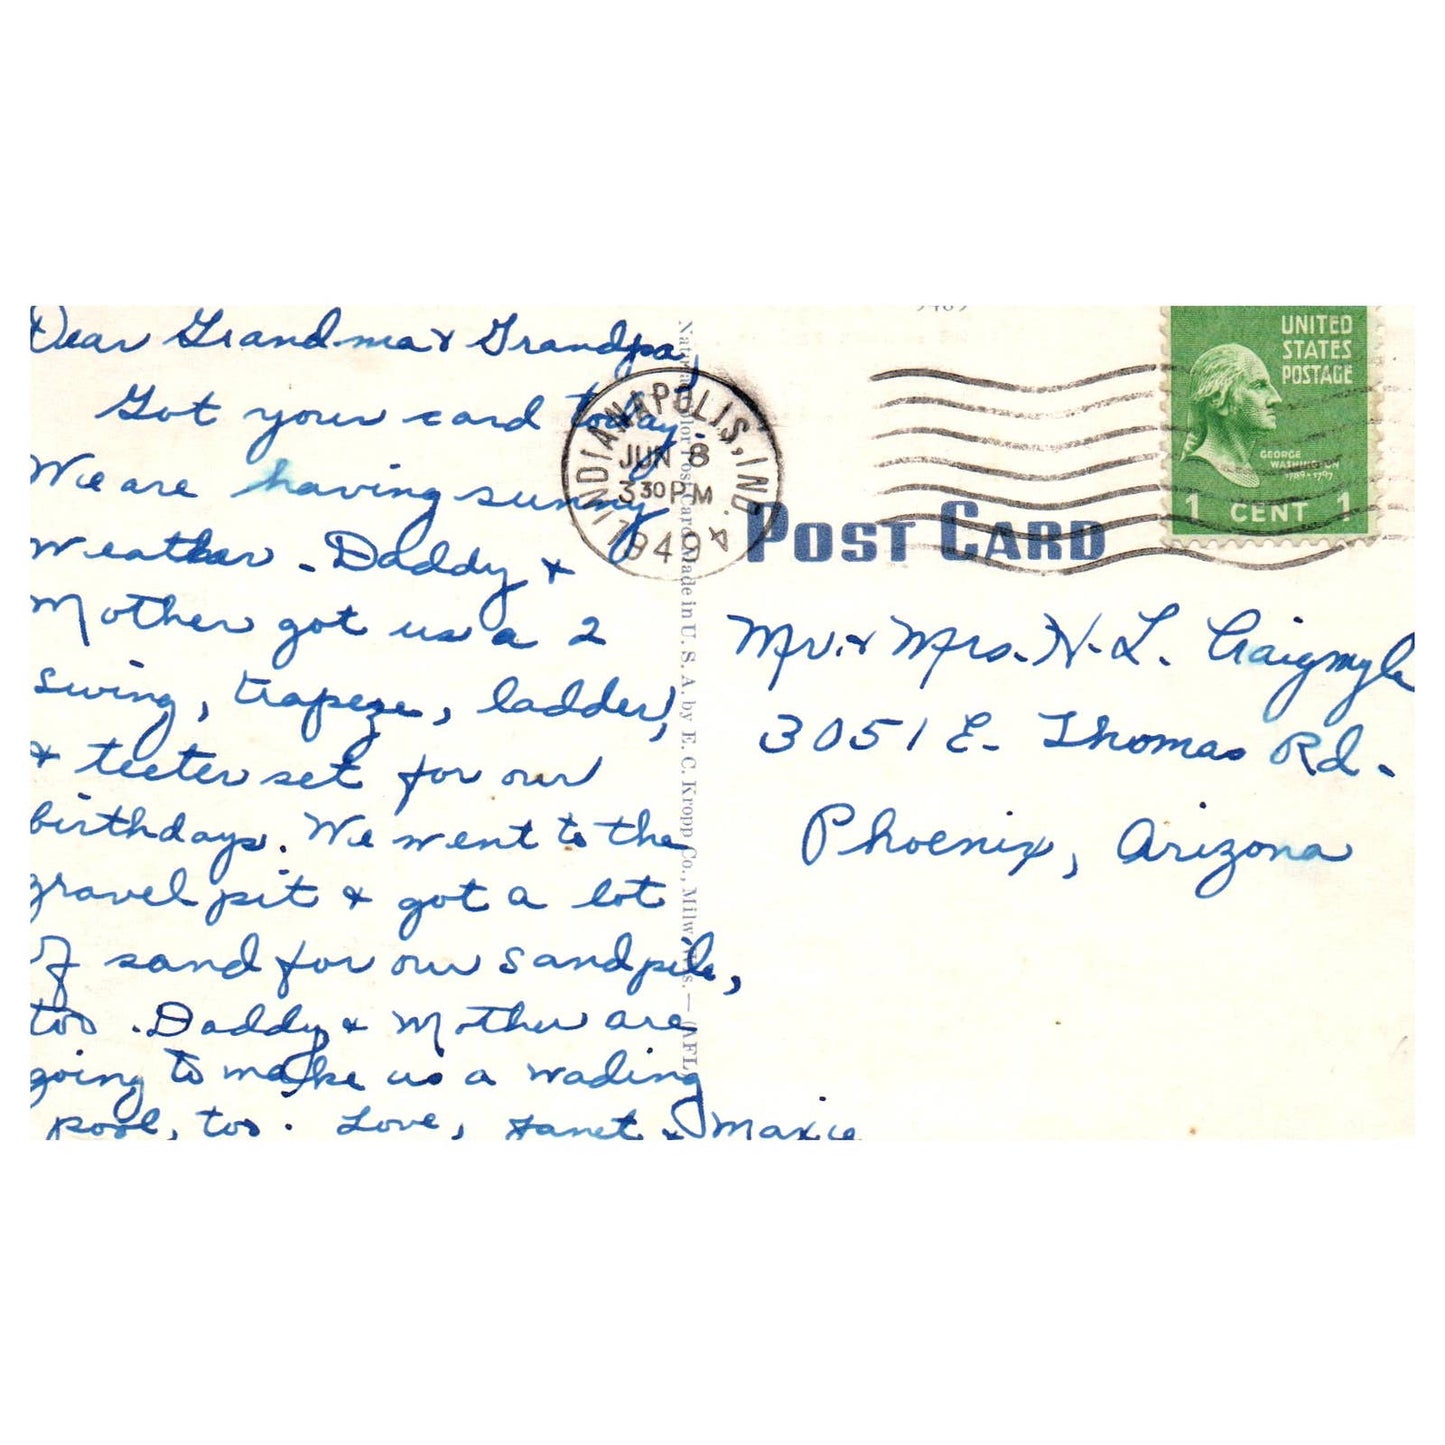 Dear Grandma & Grandpa,
Got your card today.
We are having sunny
weather - Daddy &
Mother got us a 2
swing, trapeze, ladder,
& teeter set for our
birthdays. We went to the
gravel pit & got a lot
of sand for our sandpile,
too. Daddy & Mother are
going to make us a wading
pool, too. Love, Janet & Maxie
INDIANAPOLIS, IND.
JUN 8
3 30 PM
1949
UNITED
STATES
POSTAGE
GEORGE
WASHINGTON
1789-1797
1 CENT 1
POST CARD
Mr. & Mrs. H. L. Craigmyle
3051 E. Thomas Rd.
Phoenix, Arizona
Made in U. S. A. by E. C. Kropp Co., Milw